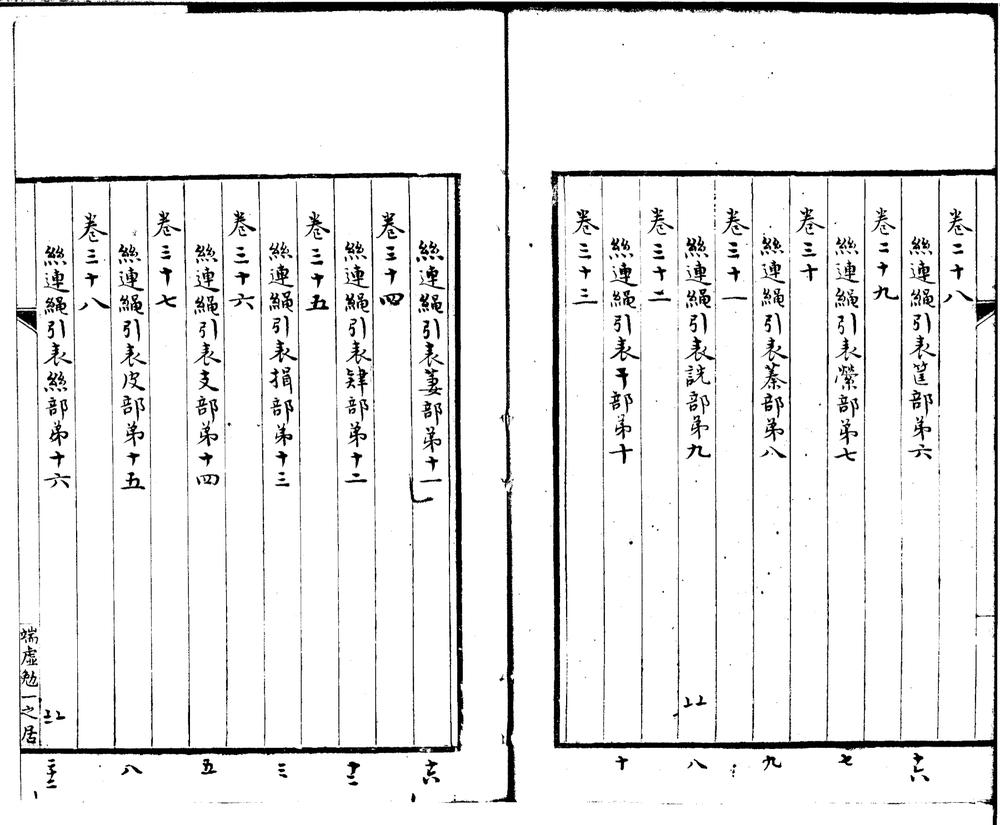 卷二十八
絲連繩引表筐部第六
卷二十九
絲連繩引表縈部第七
卷三十
絲連繩引表蓁部第八
卷三十一
絲連繩引表詵部第九
卷三十二
絲連繩引表干部第十
卷三十三
絲連繩引表萋部第十一
卷三十四
絲連繩引表肄部第十二
卷三十五
絲連繩引表揖部第十三
卷三十六
絲連繩引表支部第十四
卷三十七
絲連繩引表皮部第十五
卷三十八
絲連繩引表絲部第十六
端虛勉一之居
十六
七
九
八
十
十六
十二
三
五
八